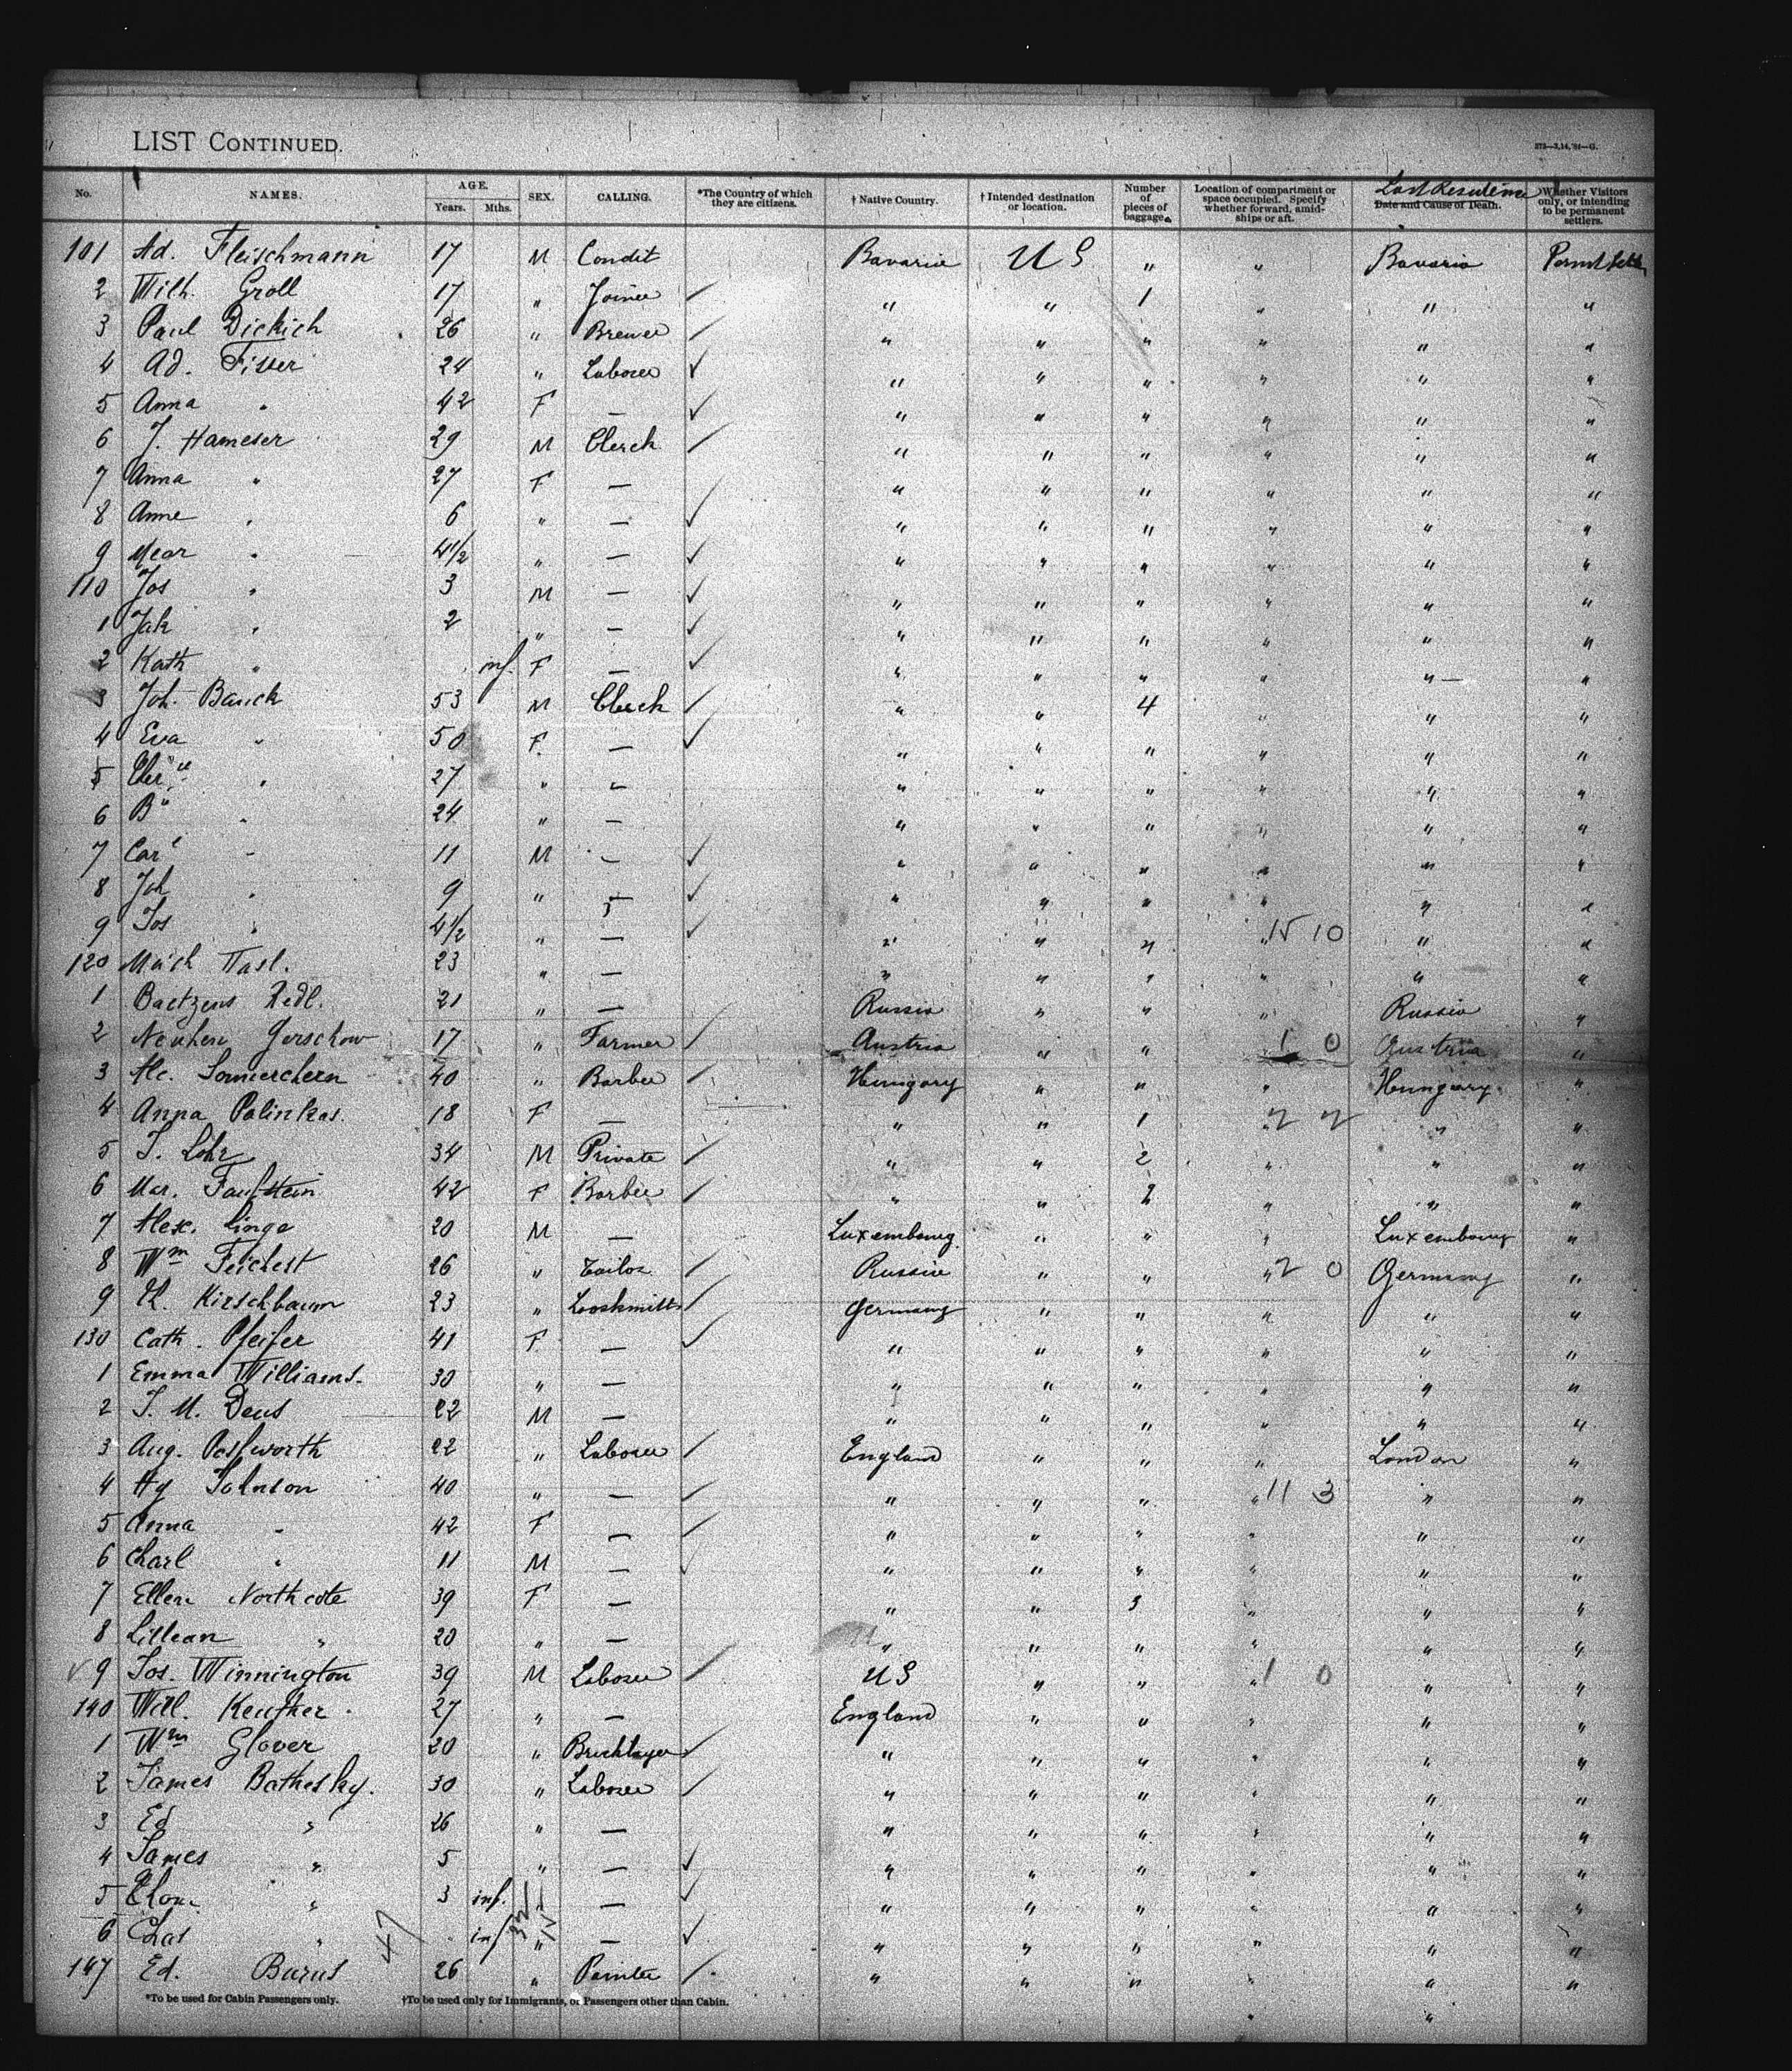 LIST CONTINUED.
273—3,14,'91—G.
No. NAMES. AGE. Years. Mths. SEX. CALLING. *The Country of which they are citizens. † Native Country. † Intended destination or location. Number of pieces of baggage. Location of compartment or space occupied. Specify whether forward, amidships or aft. Last Residence Date and Cause of Death. Whether Visitors only, or intending to be permanent settlers.
101 Ad. Fleischmann 17 M Condit Bavaria US " " Bavaria
2 Wilh. Groll 17 " Joiner " " 1 " " "
3 Paul Dickich 26 " Brewer " " " " " "
4 Ad. 24 " Laborer " " " " " "
5 Anna " 42 F — " " " " " "
6 J. Hameser 29 M Clerck " " " " " "
7 Anna " 27 F — " " " " " "
8 Anne " 6 " — " " " " " "
9 " 4 1/2 " — " " " " " "
110 Jos " 3 M — " " " " " "
1 Jak " 2 " — " " " " " "
2 Kath " inf. F — " " " " " "
3 Joh. Bauck 53 M Clerck " " 4 " " "
4 Eva " 50 F. — " " " " " "
5 " 27 " — " " " " " "
6 " 24 " — " " " " " "
7 Carl " 11 M — " " " " " "
8 Joh " 9 " — " " " " " "
9 Jos " 4 1/2 " — " " " " 15 10 " "
120 23 " — " " " " " "
1 Redl. 21 " — Russia " " " Russia "
2 Gerschow 17 " Farmer Austria " " 1 0 Austria "
3 40 " Barber Hungary " " " Hungary "
4 Anna Palinkas. 18 F — " " 1 " 2 2 " "
5 J. Löhr 34 M Private " " 2 " " "
6 Mar. Faufstein 42 F Barber " " 2 " " "
7 Alex. Linge 20 M — Luxembourg " " " Luxembourg "
8 Wm Feichest 26 " Tailor Russia " " " 2 0 Germany "
9 Kirschbaum 23 " Lockmitt Germany " " " " "
130 Cath. Pfeifer 41 F — " " " " " "
1 Emma Williams. 30 " — " " " " " "
2 J. M. Deus 22 M — " " " " " "
3 Aug. 22 " Laborer England " " " London "
4 Hy Johnson 40 " — " " " " 11 3 " "
5 Anna " 42 F — " " " " " "
6 Charl " 11 M — " " " " " "
7 Ellen Northcote 39 F — " " 3 " " "
8 Lillean " 20 " — " " " " " "
9 Jos. Winnington 39 M Laborer US " " " 1 0 " "
140 Will. Keuther 27 " — England " " " " "
1 Wm Glover 20 " Bricklayer " " " " " "
2 James Bathesky. 30 " Laborer " " " " " "
3 Ed " 26 " — " " " " " "
4 James " 5 " — " " " " " "
5 " 3 inf. " — " " " " " "
6 Chas " inf " — " " " " " "
147 Ed. Burns 26 " Painter " " " " " "
47 32 15
*To be used for Cabin Passengers only. †To be used only for Immigrants, or Passengers other than Cabin.